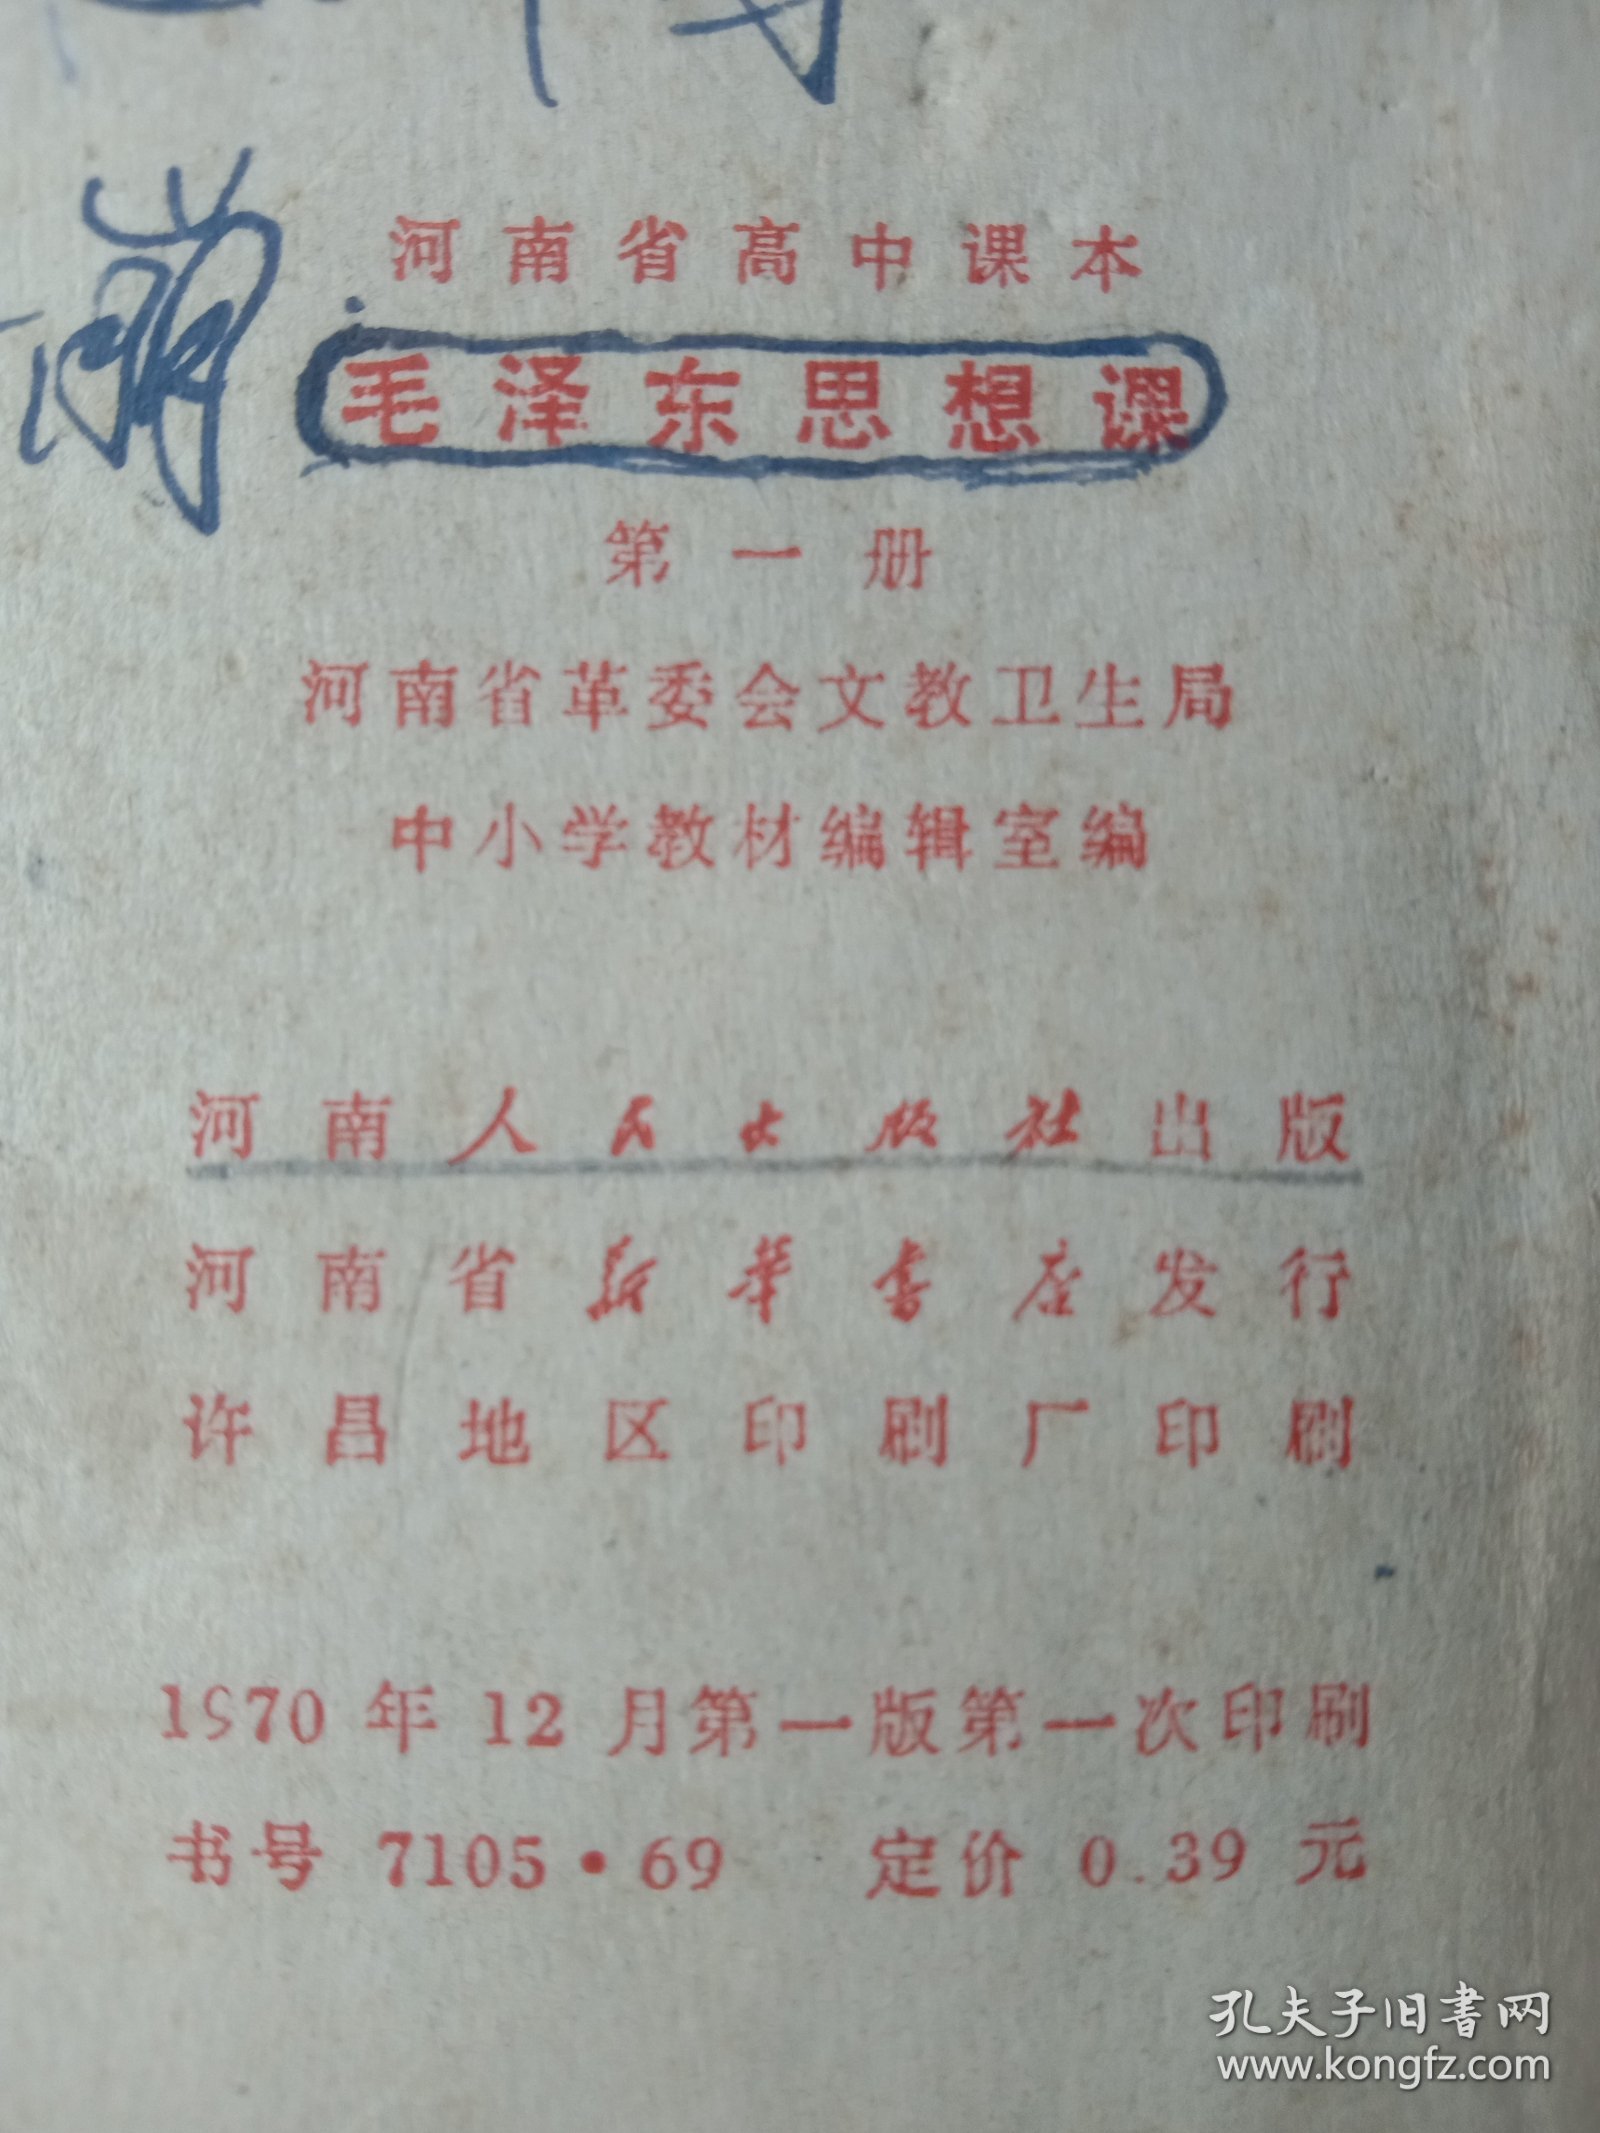 河南省高中课本
毛泽东思想课
第一册
河南省革委会文教卫生局
中小学教材编辑室编
河南人民出版社出版
河南省新华书店发行
许昌地区印刷厂印刷
1970年12月第一版第一次印刷
书号 7105·69 定价 0.39 元
孔夫子旧书网
www.kongfz.com